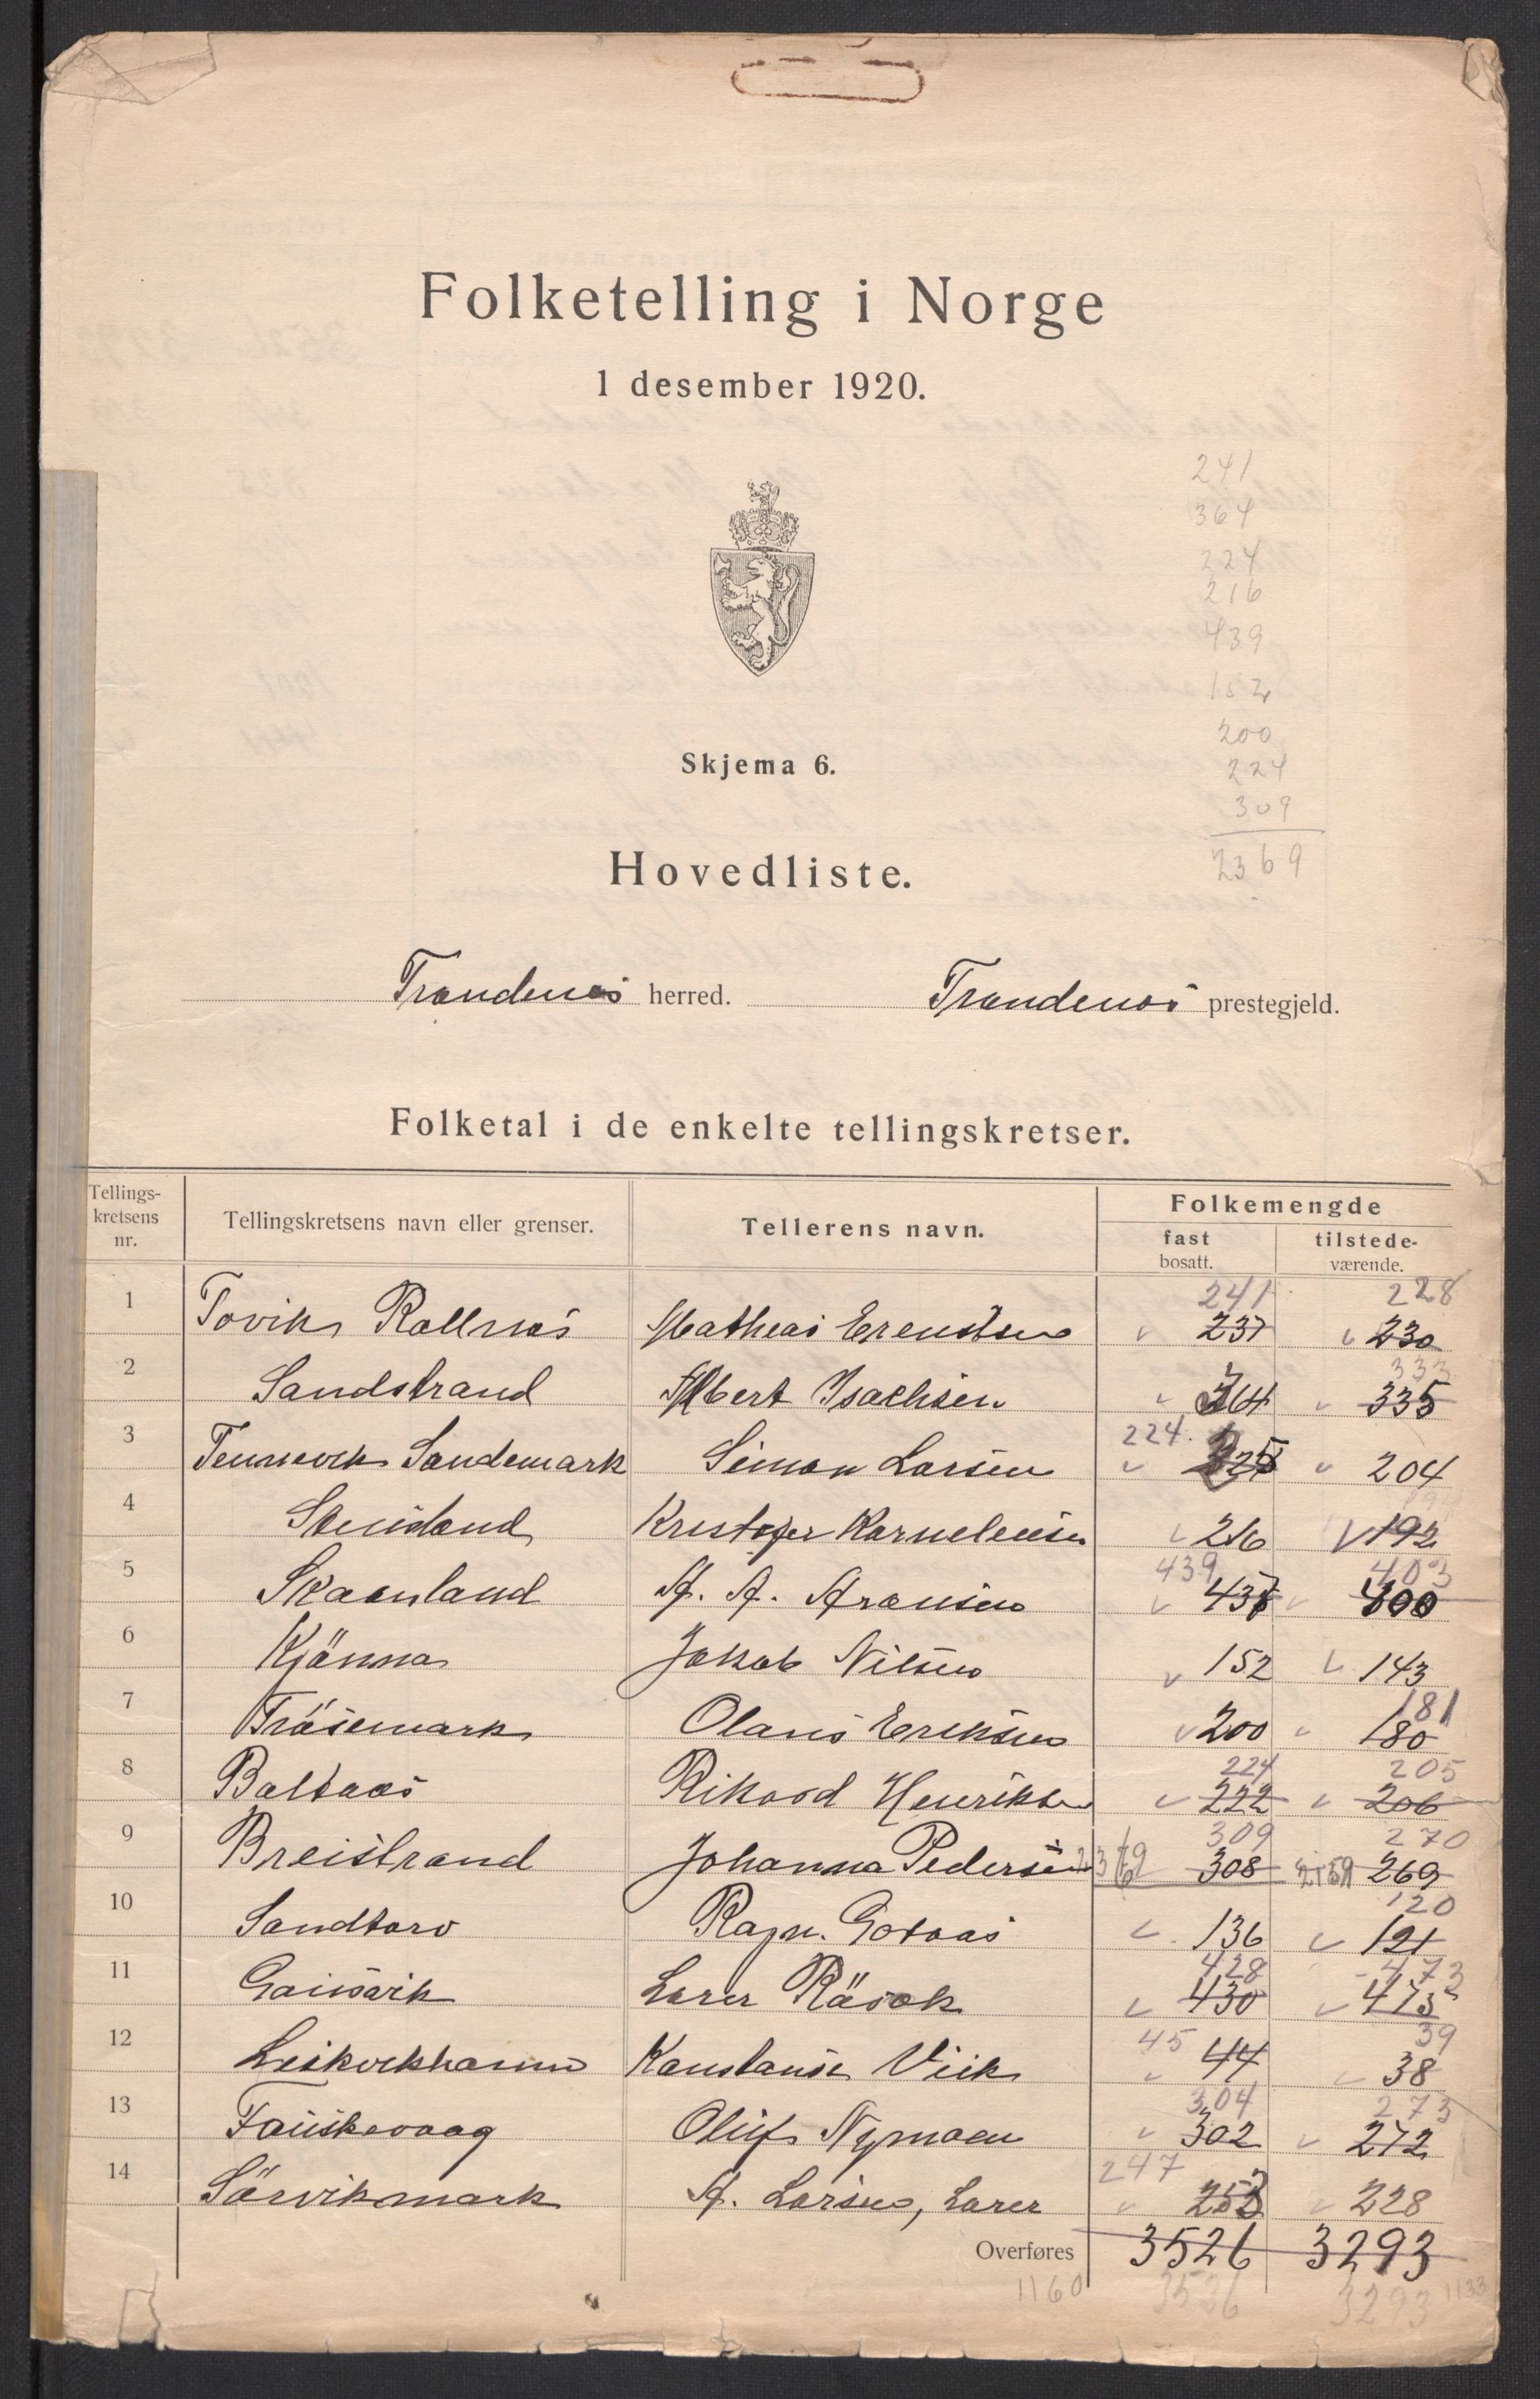 Folketelling i Norge
1 desember 1920.
241
364
224
216
439
152
200
224
309
2369
Skjema 6.
Hovedliste.
Trondenes herred. Trondenes prestegjeld.
Folketal i de enkelte tellingskretser.
Tellings-kretsens nr. Tellingskretsens navn eller grenser. Tellerens navn. Folkemengde
fast bosatt. tilstede-værende.
241 228
1 Tovik Rollnes Matheas Erentsen 237 230
333
2 Sandstrand Albert Isachsen 364 335
224.
3 Tennevik Sandemark Simon Larsen 225 204
4 Stensland Kristofer Karneliusen 216 192
439 403
5 Skaanland A. A. Aronsen 437 400
6 Kjönna Jakob Nilsen 152 143
181
7 Träsemark Olaus Eriksen 200 180
224 205
8 Baltaas Rikard Henriksen 222 206
309 270
9 Breistrand Johanna Pedersen 2369 308 2159 269
120
10 Sandtorv Ragn. Gotaas 136 121
428 473
11 Gausvik Lärer Räsok 430 475
45 39
12 Leikvikhamn Konstanse Viik 44 38
304 273
13 Fauskevaag Oluf Nymoen 302 272
247
14 Sörvikmark A. Larsen, Lärer 253 228
Overføres 3526 3293
1160 3526 3293 1133